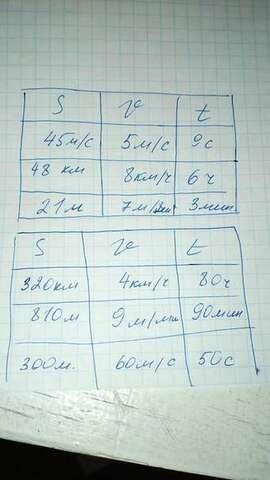 S v t
45м/с 5м/с 9с
48 км 8км/ч 6ч
21м 7м/мин 3мин.
S v t
320км 4км/ч 80ч
810м 9м/мин 90мин.
300м. 60м/с 50с